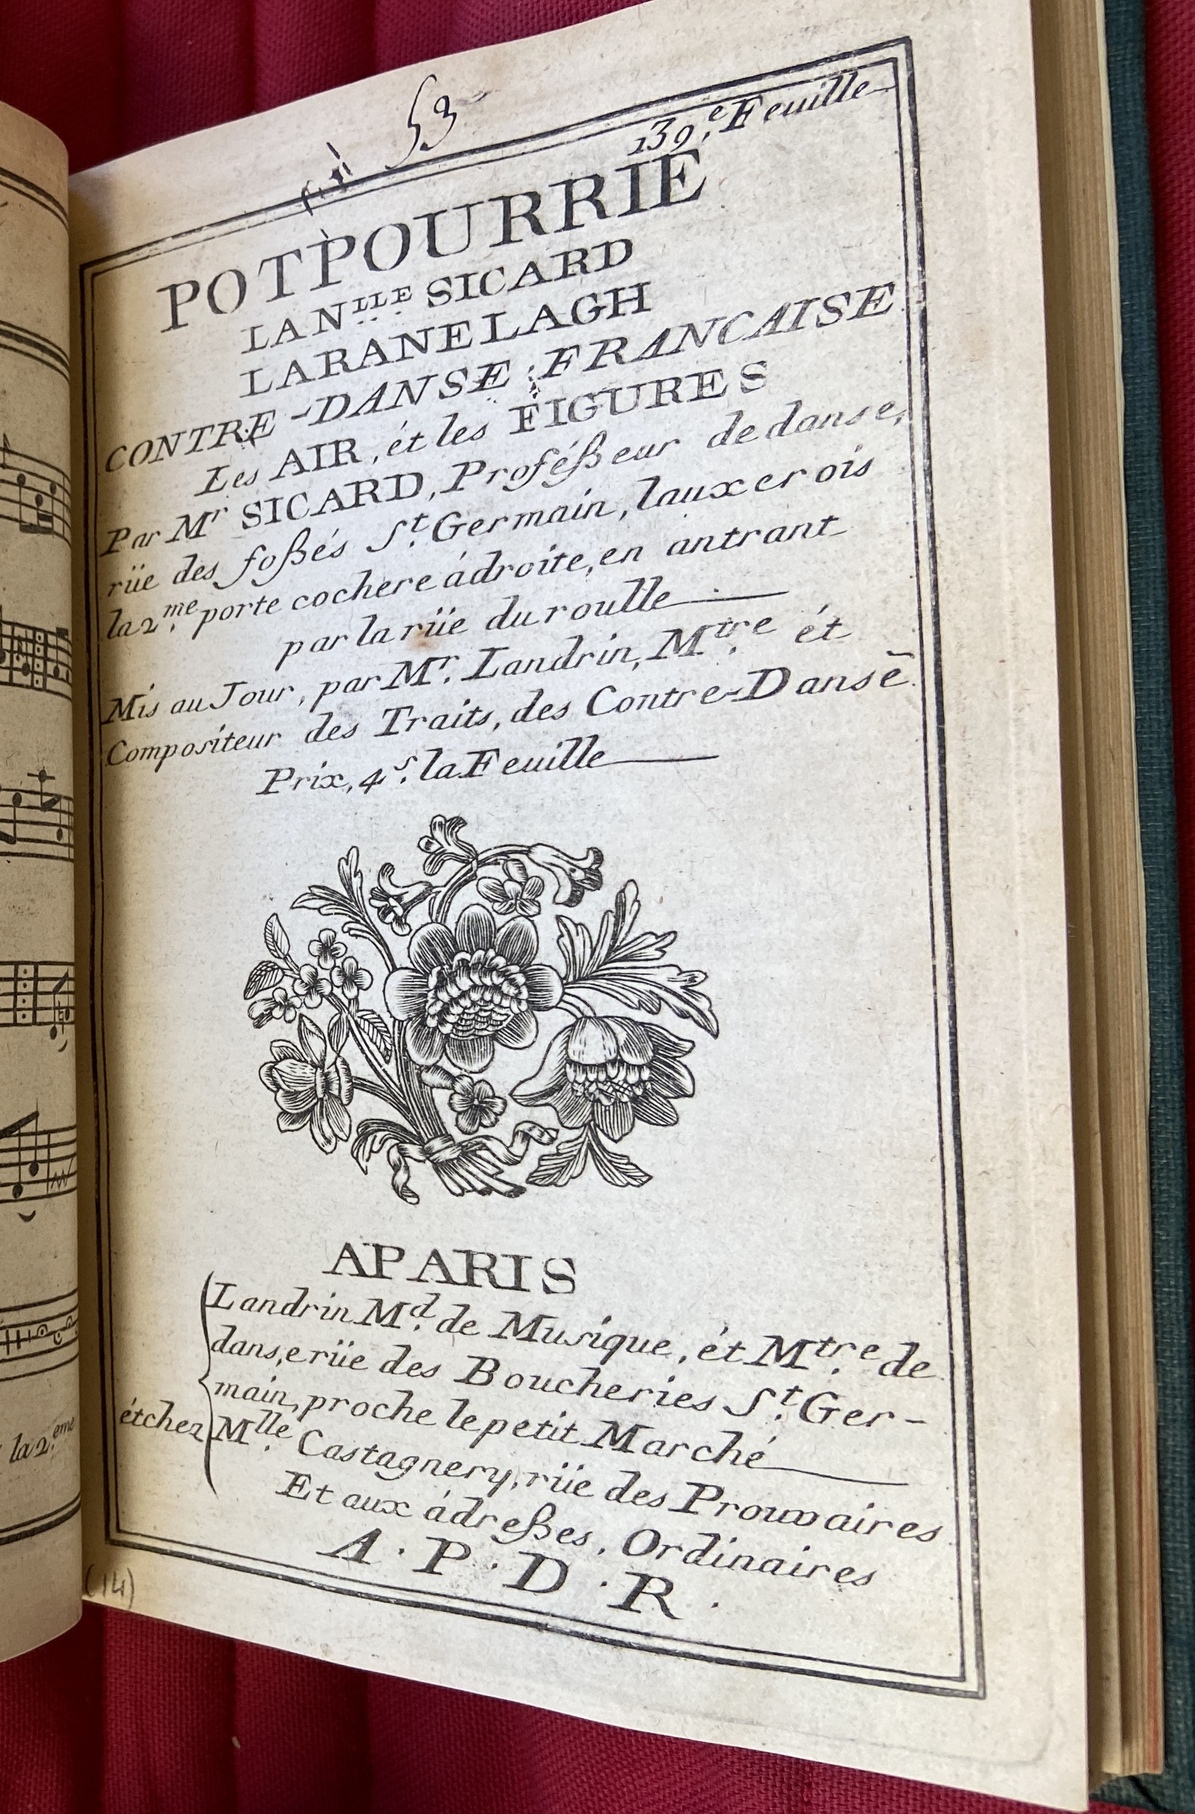 53
139.e Feuille
POTPOURRIE
LA Nlle SICARD
LARANELAGH
CONTRE-DANSE FRANCAISE
Les AIR, ét les FIGURES
Par Mr SICARD, Proféßeur de danse,
rüe des foßés St. Germain, lauxerois
la 2.me porte cochere ádroite, en antrant
par la rüe du roulle
Mis au Jour, par Mr. Landrin, Mtre. ét
Compositeur des Traits, des Contre-Dansē
Prix, 4s. la Feuille
APARIS
Landrin Md. de Musique, ét Mtre. de
dans,e rüe des Boucheries St. Ger-
main, proche le petit Marché
étchez Mlle. Castagnery, rüe des Prouvaires
Et aux ádreßes, Ordinaires
A. P. D. R.
(14)
la 2.eme